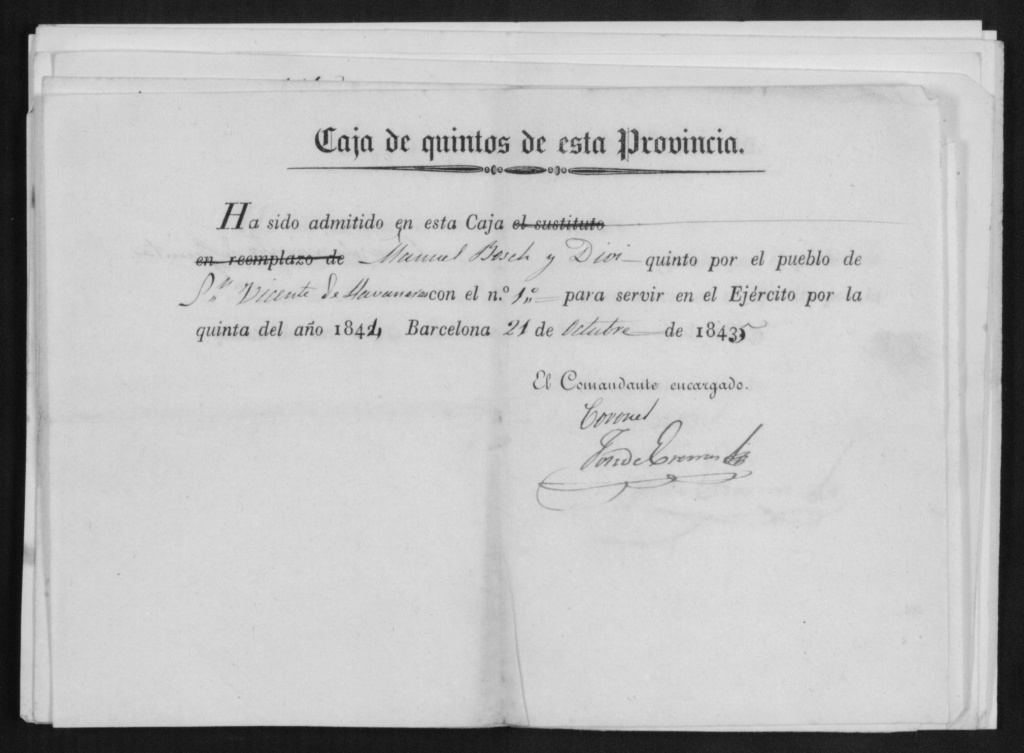 Caja de quintos de esta Provincia.
Ha sido admitido en esta Caja el sustituto
en reemplazo de Manuel Bosch y Divi quinto por el pueblo de
Sn Vicente de Llavaneras con el n.º 1º para servir en el Ejército por la
quinta del año 184 Barcelona 21 de Octubre de 184
El Comandante encargado.
Coronel